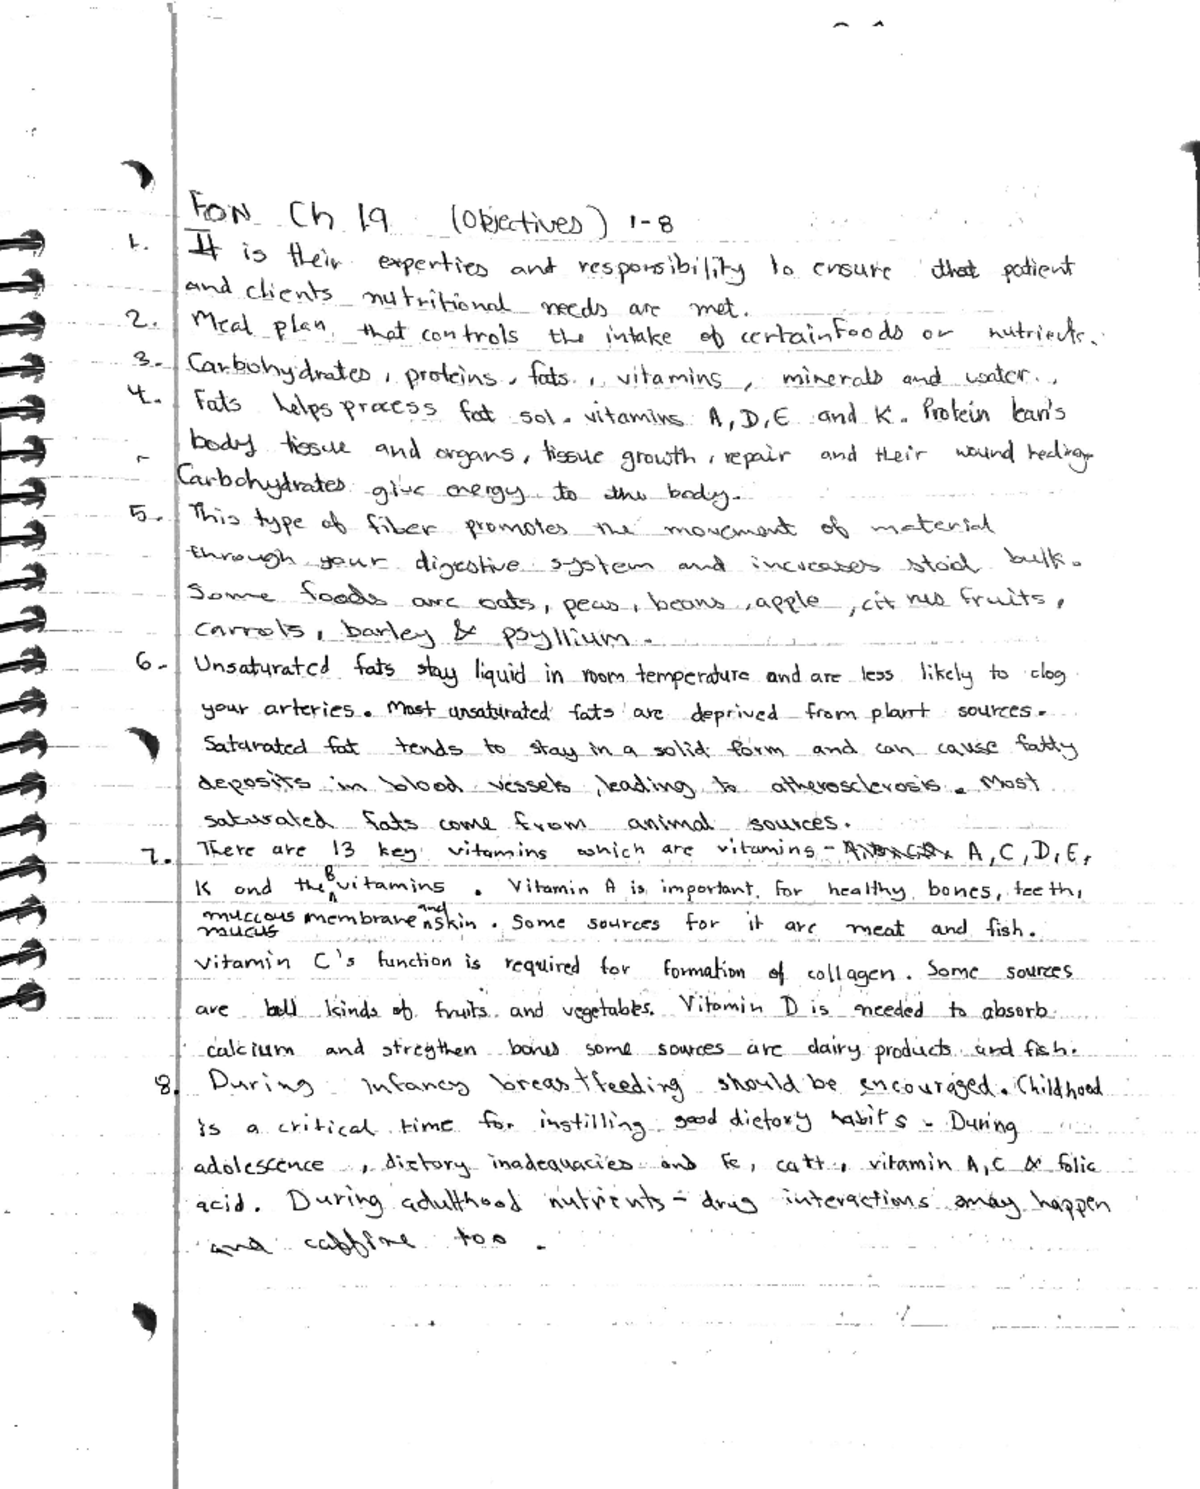 FON Ch 19 (Objectives) 1-8
1. It is their experties and responsibility to ensure that patient
and clients nutritional needs are met.
2. Meal plan that controls the intake of certain Foods or nutrients.
3. Carbohydrates, proteins, fats, vitamins, minerals and water.
4. Fats helps process fat sol. vitamins A, D, E and K. Protein
body tissue and organs, tissue growth, repair and their wound healing
Carbohydrates give energy to the body.
5. This type of fiber promotes the movement of material
through your digestive system and increases stool bulk.
Some foods are oats, peas, beans, apple, citrus fruits,
carrots, barley & psyllium.
6. Unsaturated fats stay liquid in room temperature and are less likely to clog
your arteries. Most unsaturated fats are deprived from plant sources.
Saturated fat tends to stay in a solid form and can cause fatty
deposits in blood vessels, leading to atherosclerosis. Most
saturated fats come from animal sources.
7. There are 13 key vitamins which are vitamins - A, C, D, E,
K and the B vitamins. Vitamin A is important for healthy bones, teeth,
muccous mucus membrane and skin. Some sources for it are meat and fish.
Vitamin C's function is required for formation of collagen. Some sources
are kinds of fruits and vegetables. Vitamin D is needed to absorb
calcium and stregthen bones some sources are dairy products and fish.
8. During infancy breastfeeding should be encouraged. Childhood
is a critical time for instilling good dietory habits. During
adolescence, dietory inadequacies and Fe, vitamin A, C & folic
acid. During adulthood nutrients - drug interactions may happen
and caffine too.